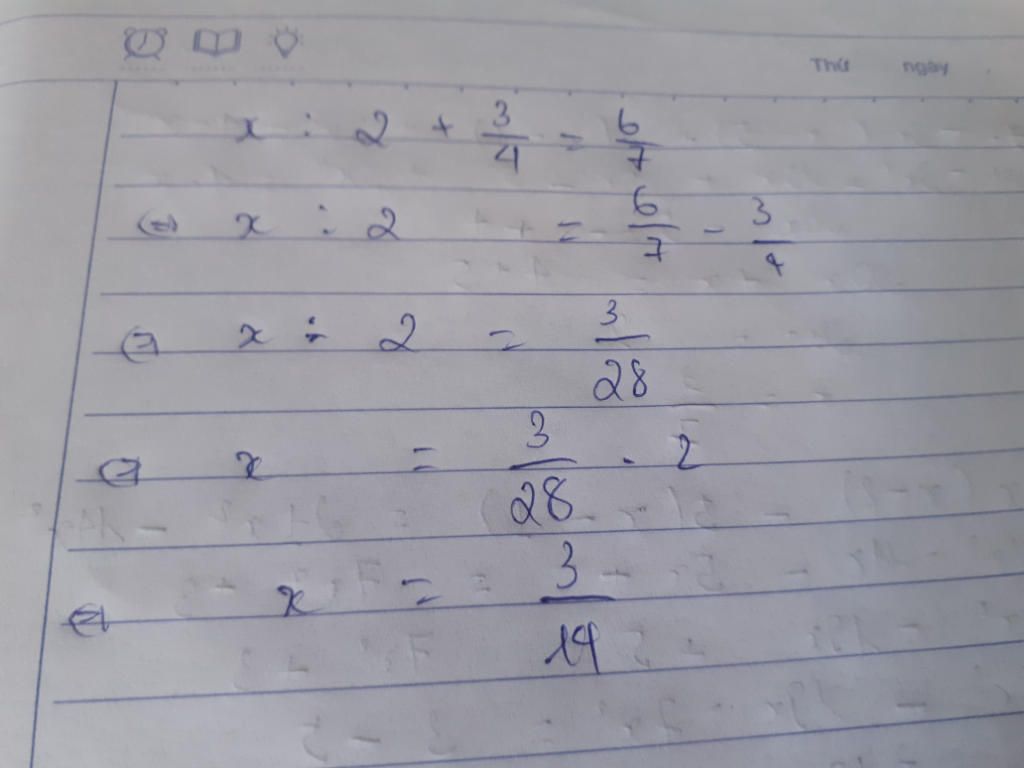 Thứ ngày
x : 2 + 3/4 = 6/7
⇔ x : 2 = 6/7 - 3/4
⇔ x : 2 = 3/28
⇔ x = 3/28 . 2
⇔ x = 3/14